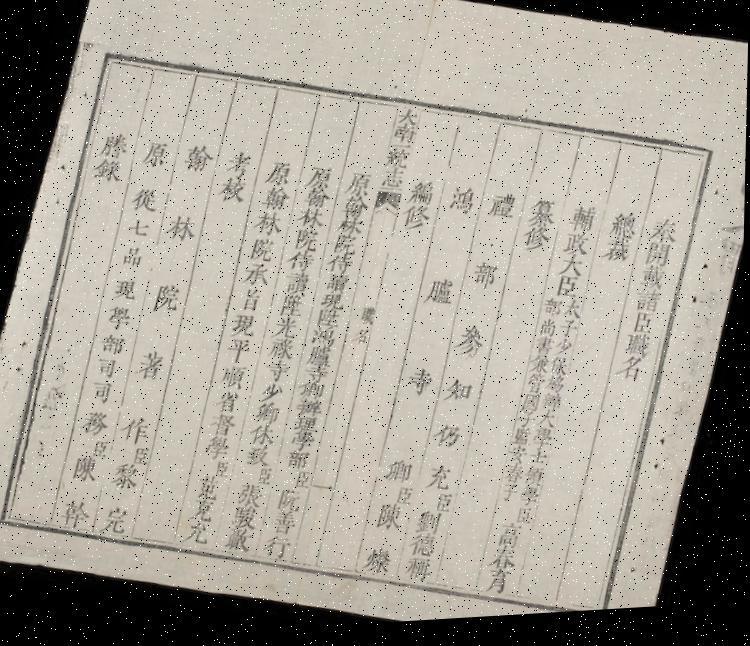 奉開載諸臣職名
總裁
輔政大臣太子少保協辦大學士領學部尚書兼管國子監安春子臣高春育
纂修
禮部參知仍充臣劉德稱
鴻臚寺卿臣陳燦
編修
大南一統志 職名 一
原翰林院侍讀現陞鴻臚寺卿辦理學部臣阮善行
原翰林院侍讀陞光祿寺少卿休致臣張駿
原翰林院承旨現平順省督學臣范克允
考校
翰林院著作臣黎完
原從七品現學部司務臣陳幹
謄錄